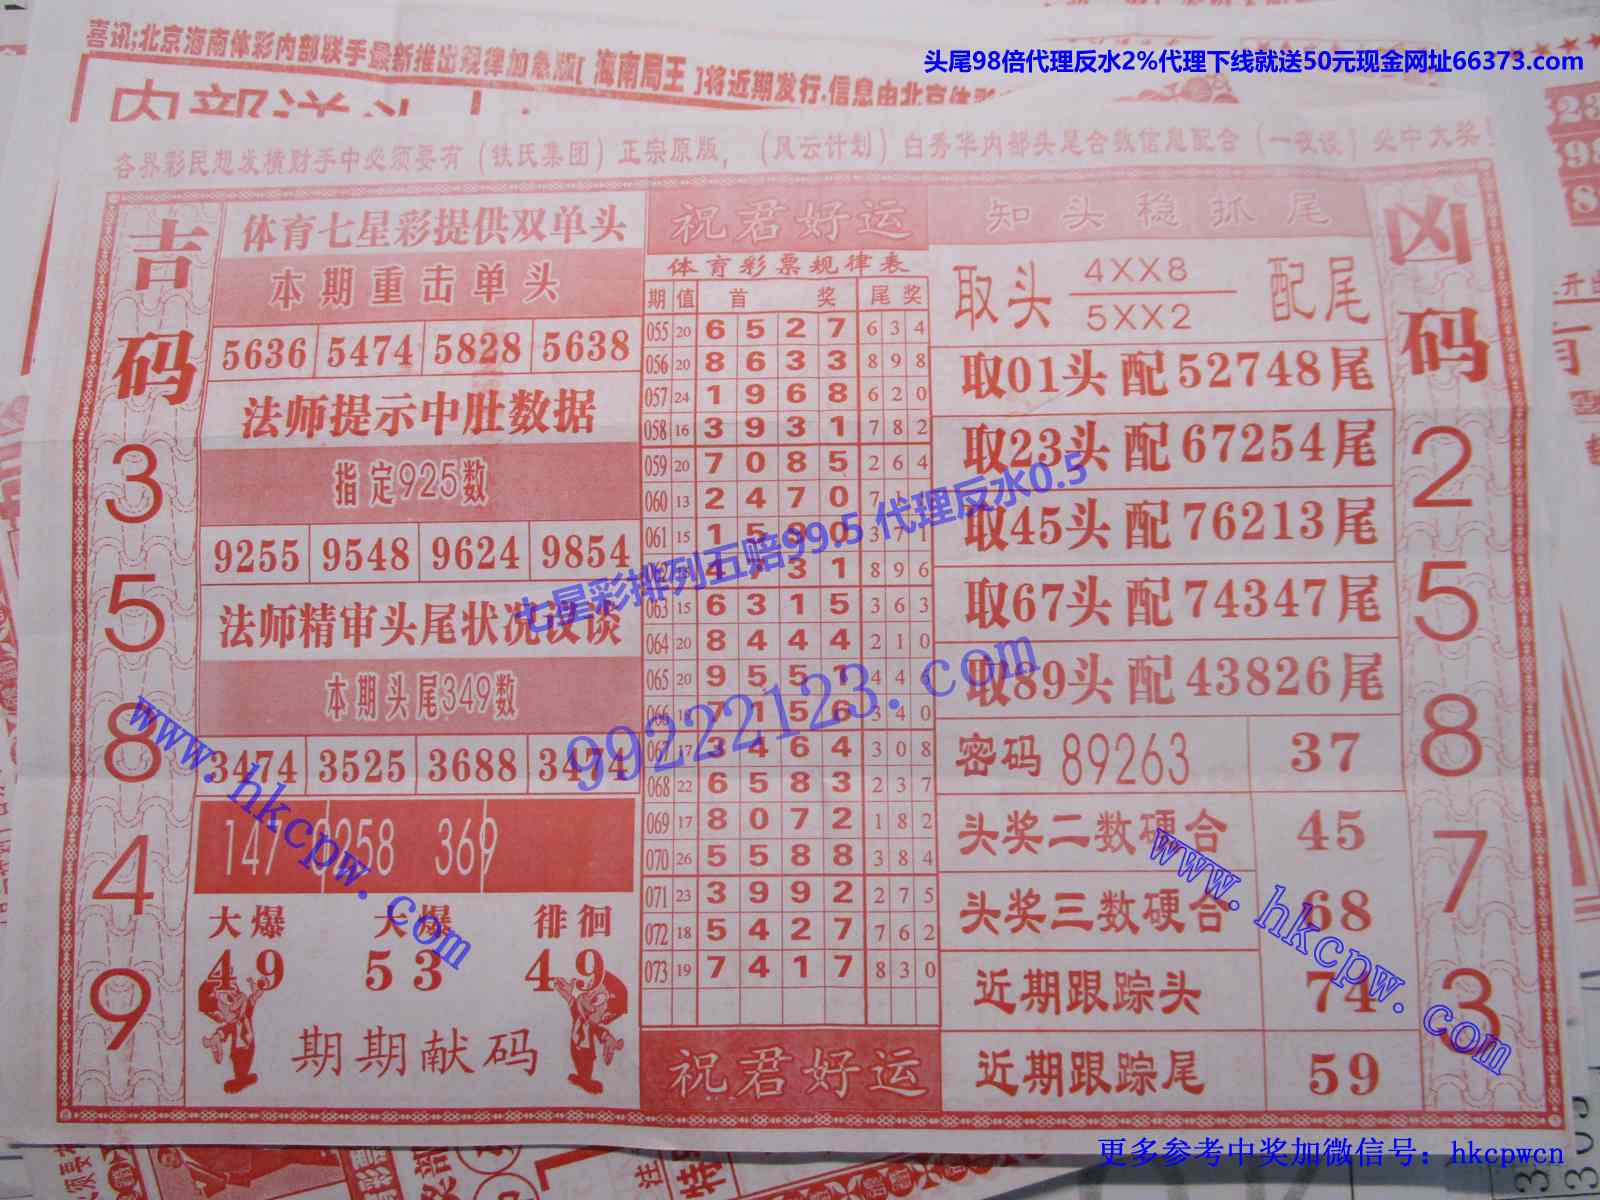 喜讯;北京海南体彩内部联手最新推出规律加急版[海南局王]将近期发行,信息由北京体彩
头尾98倍代理反水2%代理下线就送50元现金网址66373.com
各界彩民想发横财手中必须要有(铁氏集团)正宗原版,(风云计划)白秀华内部头尾合数信息配合(一夜谈)必中大奖!
吉码
3
5
8
4
9
体育七星彩提供双单头
本期重击单头
5636 5474 5828 5638
法师提示中肚数据
指定925数
9255 9548 9624 9854
法师精审头尾状况设谈
本期头尾349数
3474 3525 3688 3474
147 258 369
大爆 大爆 徘徊
49 53 49
期期献码
祝君好运
体育彩票规律表
期 值 首 奖 尾 奖
055 20 6 5 2 7 6 3 4
056 20 8 6 3 3 8 9 8
057 24 1 9 6 8 6 2 0
058 16 3 9 3 1 7 8 2
059 20 7 0 8 5 2 6 4
060 13 2 4 7 0 7
061 15 1 5 0 3 7 1
4 3 1 8 9 6
063 15 6 3 1 5 3 6 3
064 20 8 4 4 4 2 1 0
065 20 9 5 5 1 4 4
066 7 1 5 6 3 4 0
067 17 3 4 6 4 3 0 8
068 22 6 5 8 3 2 3 7
069 17 8 0 7 2 1 8 2
070 26 5 5 8 8 3 8 4
071 23 3 9 9 2 2 7 5
072 18 5 4 2 7 7 6 2
073 19 7 4 1 7 8 3 0
祝君好运
知头稳抓尾
取头 4XX8 配尾
5XX2
取01头配52748尾
取23头配67254尾
取45头配76213尾
取67头配74347尾
取89头配43826尾
密码 89263 37
头奖二数硬合 45
头奖三数硬合 68
近期跟踪头 74
近期跟踪尾 59
凶码
2
5
8
7
3
七星彩排列五赔99.5 代理反水0.5
99222123.com
www.hkcpw.com
www.hkcpw.com
更多参考中奖加微信号：hkcpwcn